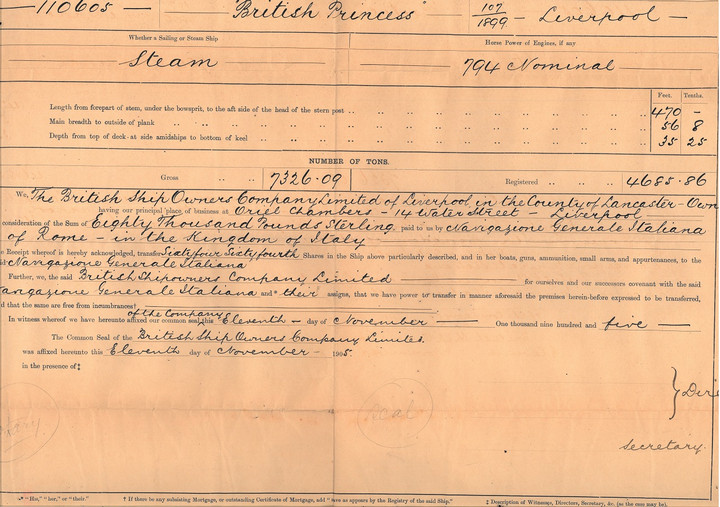 110605 — British Princess 107/1899 — Liverpool —
Whether a Sailing or Steam Ship Horse Power of Engines, if any
Steam 794 Nominal
Feet. Tenths.
Length from forepart of stem, under the bowsprit, to the aft side of the head of the stern post 470 -
Main breadth to outside of plank 56 8
Depth from top of deck at side amidships to bottom of keel 35 25
NUMBER OF TONS.
Gross 7326·09 Registered 4685·86
We, The British Ship Owners Company Limited of Liverpool in the County of Lancaster - Own
having our principal place of business at Oriel Chambers - 14 Water Street - Liverpool
consideration of the Sum of Eighty Thousand Pounds Sterling paid to us by Navigazione Generale Italiana
of Rome - in the Kingdom of Italy
e Receipt whereof is hereby acknowledged, transfer Sixty four Sixty fourth Shares in the Ship above particularly described, and in her boats, guns, ammunition, small arms, and appurtenances, to the
id Navigazione Generale Italiana
Further, we, the said British Shipowners Company Limited — for ourselves and our successors covenant with the said
avigazione Generale Italiana and * their assigns, that we have power to transfer in manner aforesaid the premises herein-before expressed to be transferred,
d that the same are free from incumbrances†
of the Company
In witness whereof we have hereunto affixed our common seal this Eleventh — day of November — One thousand nine hundred and five —
The Common Seal of the British Ship Owners Company Limited.
was affixed hereunto this Eleventh day of November - 1905.
in the presence of‡
} Dire
Seal
Secretary.
* "His," "her," or "their." † If there be any subsisting Mortgage, or outstanding Certificate of Mortgage, add "save as appears by the Registry of the said Ship." ‡ Description of Witnesses, Directors, Secretary, &c. (as the case may be).